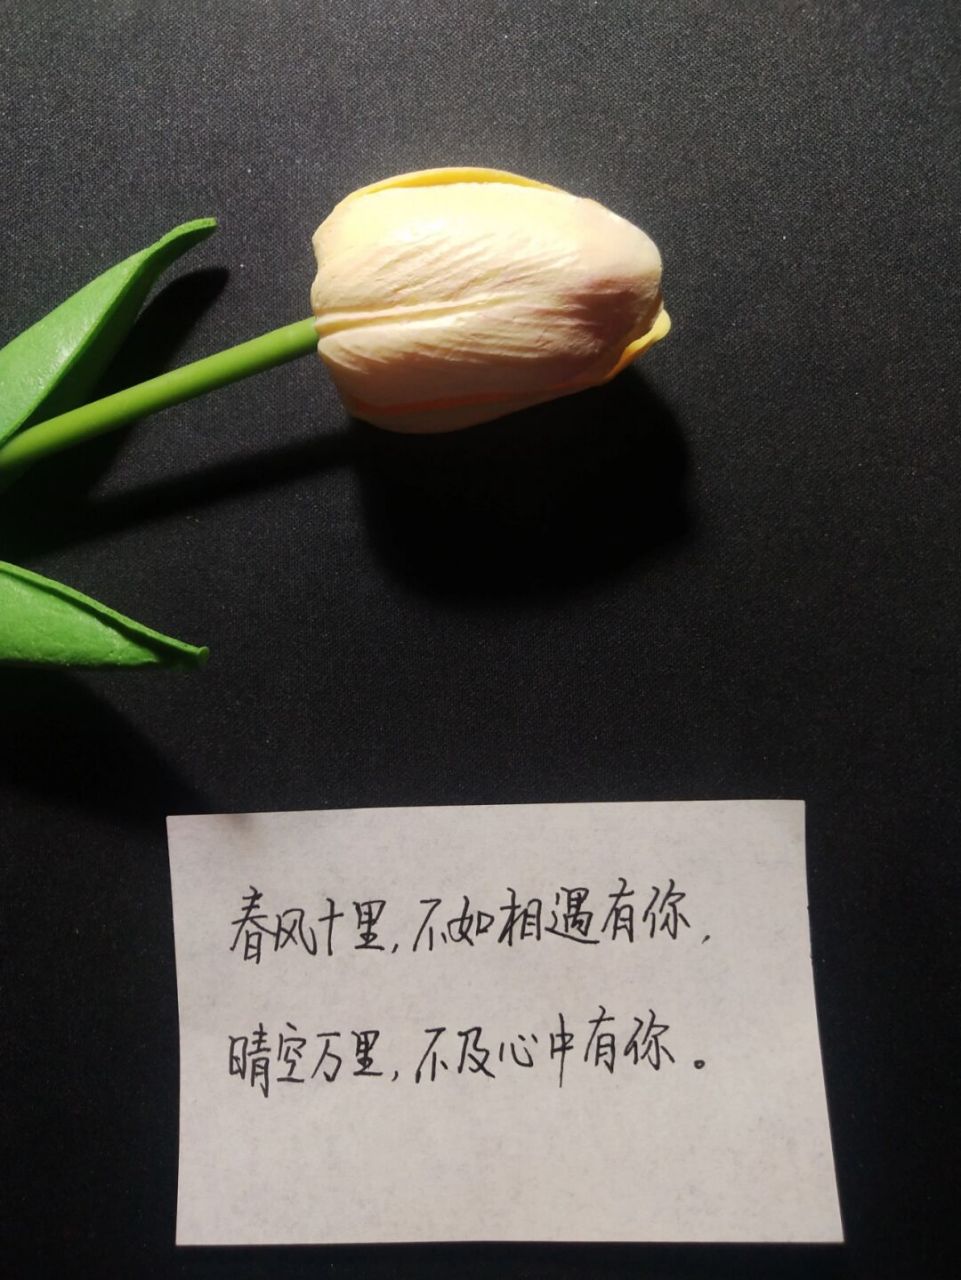 春风十里,不如相遇有你,
晴空万里,不及心中有你。